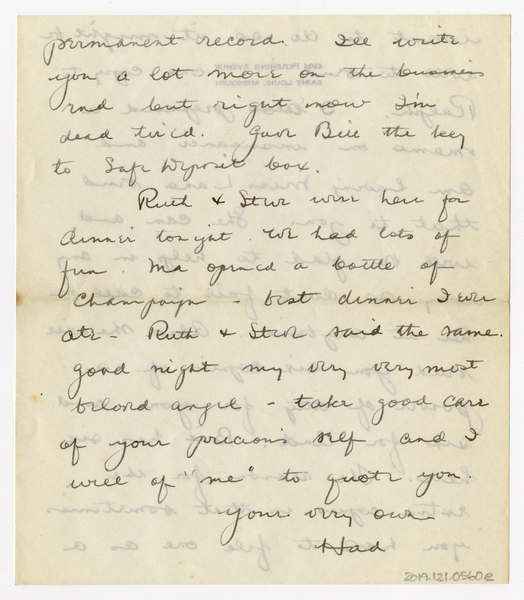 permanent record. I'll write
you a lot more on the business
end but right now I'm
dead tired. Gave Bill the key
to Safe Deposit box.
Ruth & Steve were here for
dinner tonight. We had lots of
fun. Ma opened a bottle of
Champaign - best dinner I ever
ate - Ruth & Steve said the same.
Good night my very very most
belovd angel - take good care
of your precious self and I
will of "me" to quote you.
Your very own
Had
2019.121.0560e